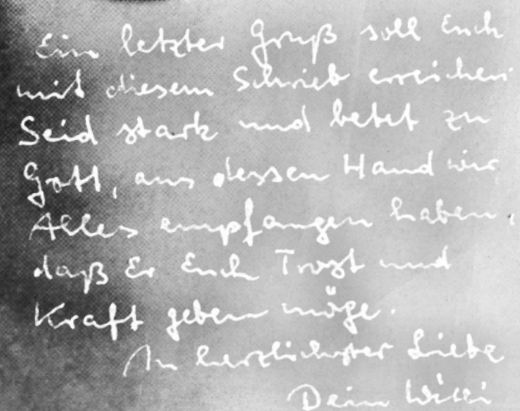 Ein letzter Gruß soll Euch
mit diesem Schrieb erreichen.
Seid stark und betet zu
Gott, aus dessen Hand wir
Alles empfangen haben,
daß Er Euch Trost und
Kraft geben möge.
In herzlichster Liebe
Dein Willi